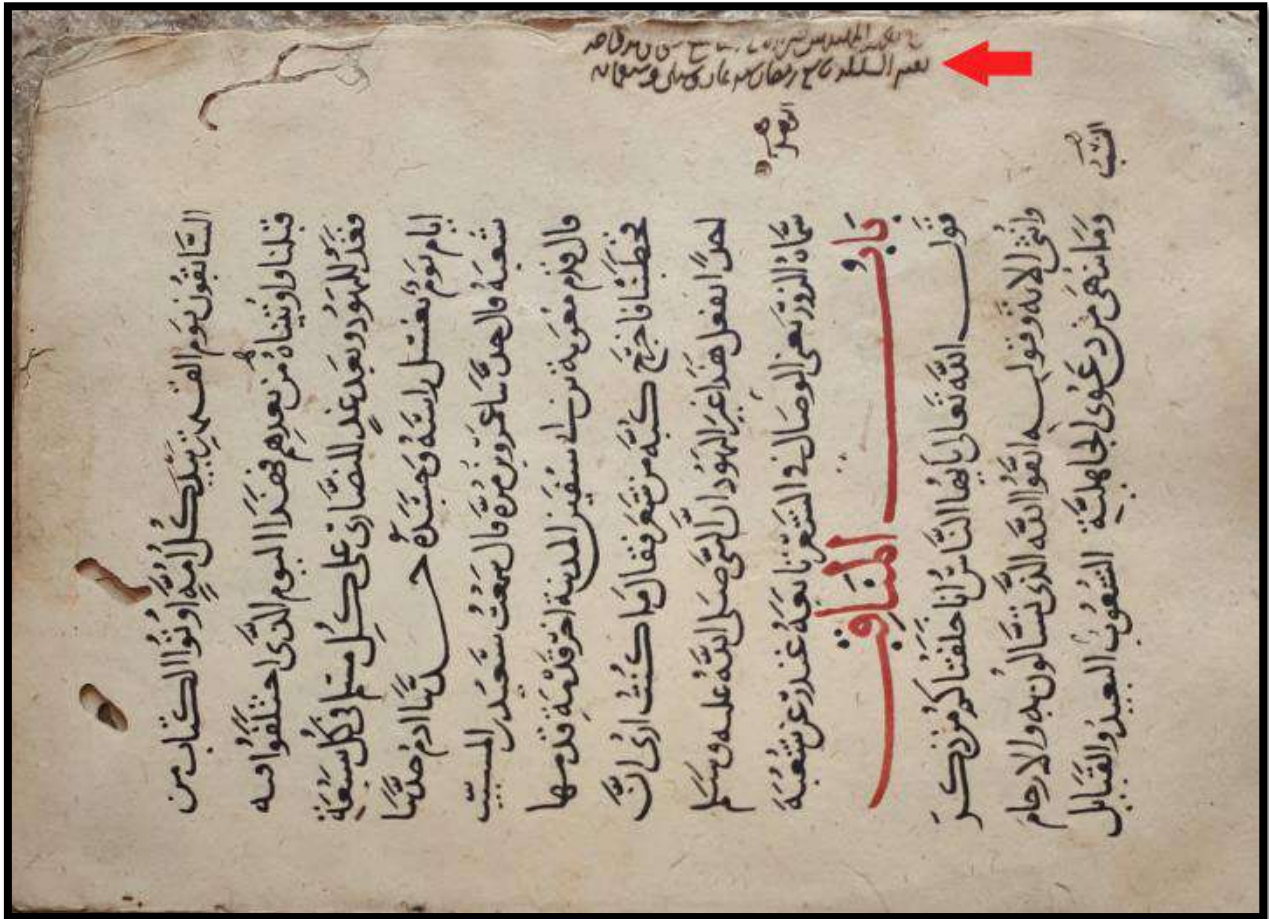 السابقون يوم القيمة بيد كل امة اوتوا الكتاب من
قبلنا واوتيناه من بعدهم فهذا اليوم الذى اختلفوا فيه
فغد لليهود وبعد غد للنصارى على كل مسلم فى كل سبعة
ايام يوم يغسل راسه وجسده حدثنا ادم حدثنا
شعبة قال حدثنا عمرو بن مرة قال سمعت سعيد بن المسيب
قال قدم معوية بن ابى سفين المدينة اخر قدمة قدمها
فخطبنا فاخرج كبة من شعر فقال ما كنت ارى ان
احدا يفعل هذا غير اليهود ان النبى صلى الله عليه وسلم
سماه الزور يعنى الوصال فى الشعر تابعه غندر عن شعبة
باب المناقب
قول الله تعالى يايها الناس انا خلقناكم من ذكر
وانثى الاية وقوله اتقوا الله الذى تسالون به والارحام
وما ينهى من دعوى الجاهلية الشعوب البعيد والقبايل